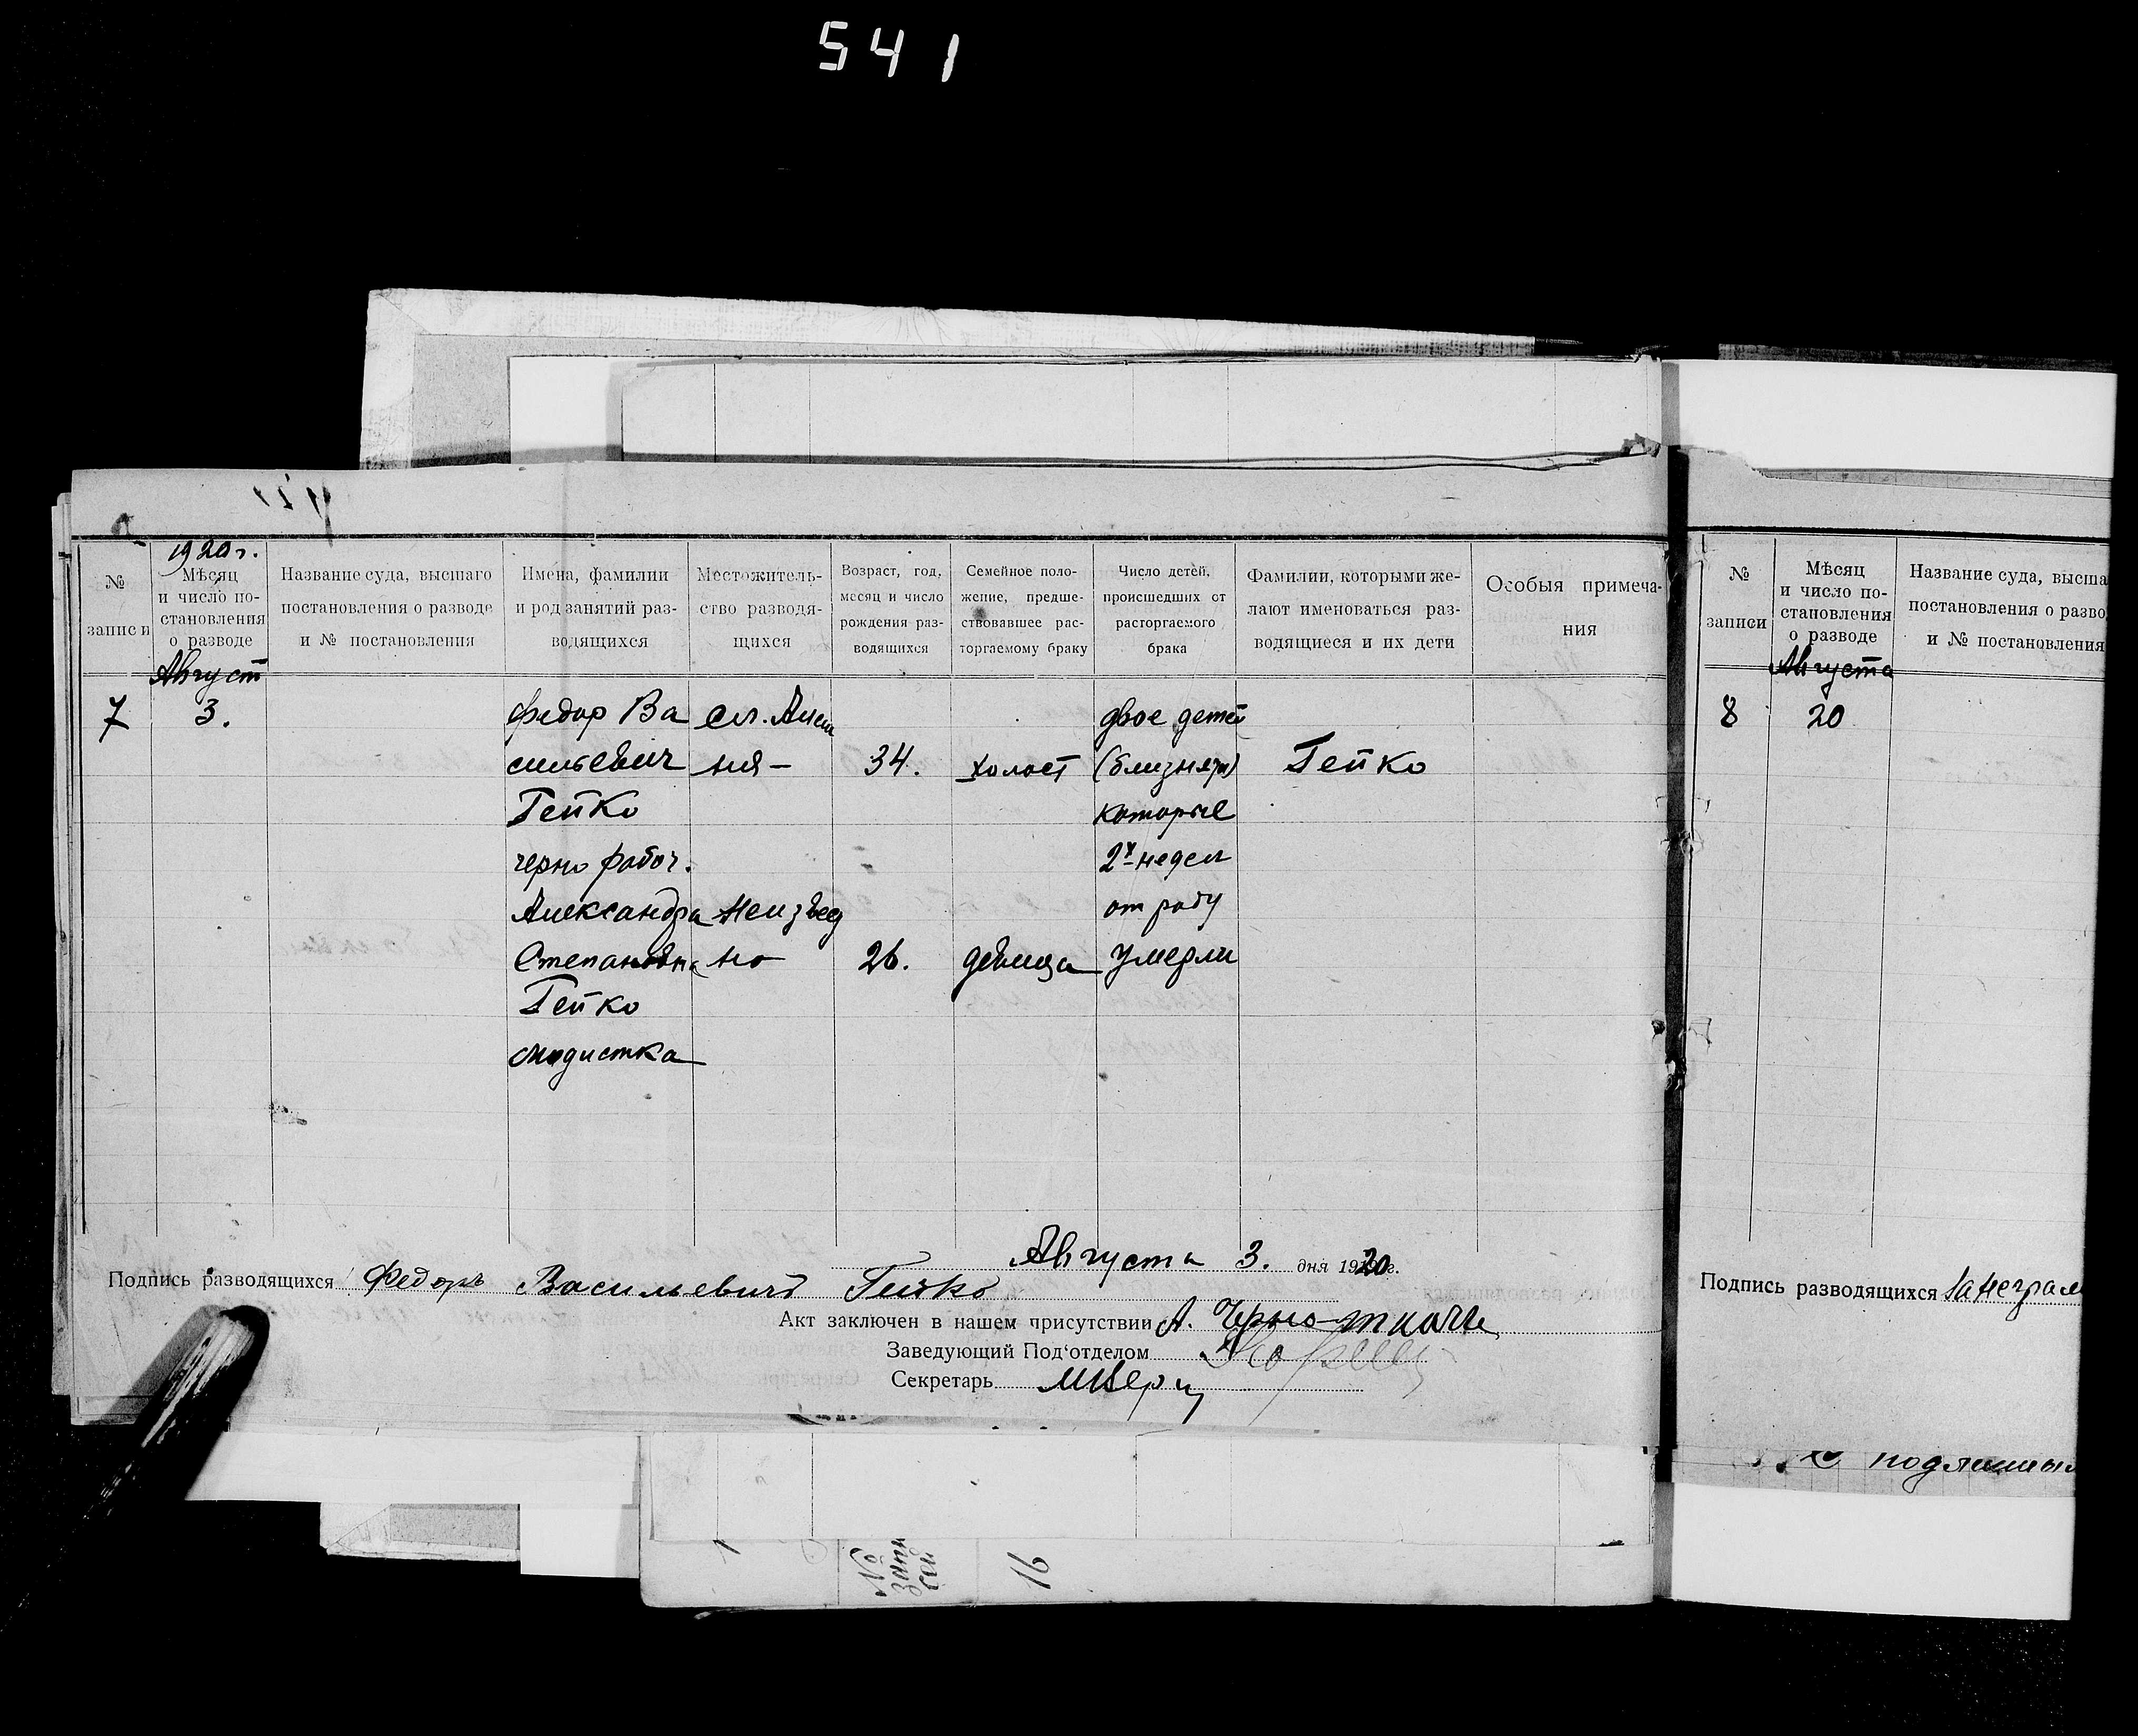 541
1920 г.
№ записи
Мѣсяц и число постановления о разводе
Название суда, высшаго постановления о разводе и № постановления
Имена, фамилии и род занятий разводящихся
Местожительство разводящихся
Возраст, год, месяц и число рождения разводящихся
Семейное положение, предшествовавшее расторгаемому браку
Число детей, происшедших от расторгаемого брака
Фамилии, которыми желают именоваться разводящиеся и их дети
Особыя примечания
Август
7 3. Федор Ва ст. двое детей
сильевич 34. холост (близнецы) Гейко
Гейко которые
черно рабоч. 2х недел
Александра Неизвес от роду
Степановна но 26. девица умерли
Гейко
модистка
Августа 3. дня 1920 г.
Подпись разводящихся Федоръ Васильевичъ Гейко
Акт заключен в нашем присутствии А. Черно
Заведующий Под'отделом
Секретарь
№ записи
Мѣсяц и число постановления о разводе
Название суда, высша
постановления о разво
и № постановления
Августа
8 20
Подпись разводящихся за неграм
С подлинным
№ записей 16